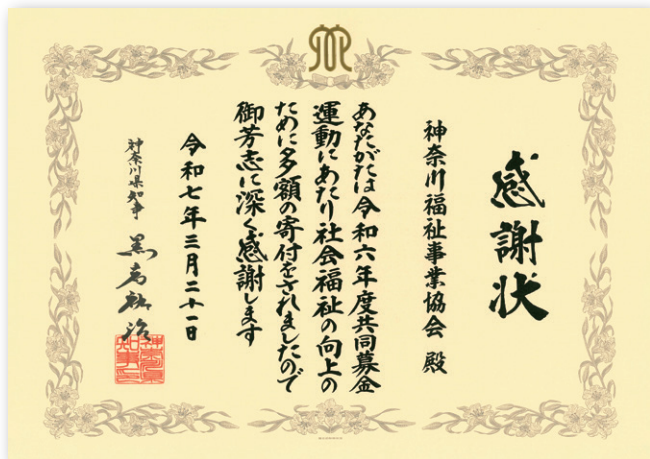 感謝状
神奈川福祉事業協会 殿
あなたがたは令和六年度共同募金
運動にあたり社会福祉の向上の
ために多額の寄付をされましたので
御芳志に深く感謝します
令和七年三月二十一日
神奈川県知事 黒岩祐治